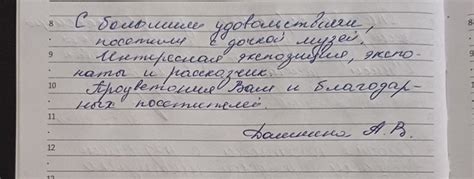 8 С большим удовольствием,
посетили с дочкой музей.
9 Интересная экспозиция, экспо-
наты и рассказчик.
10 Процветания Вам и благодар-
ных посетителей.
11
А. В.
12